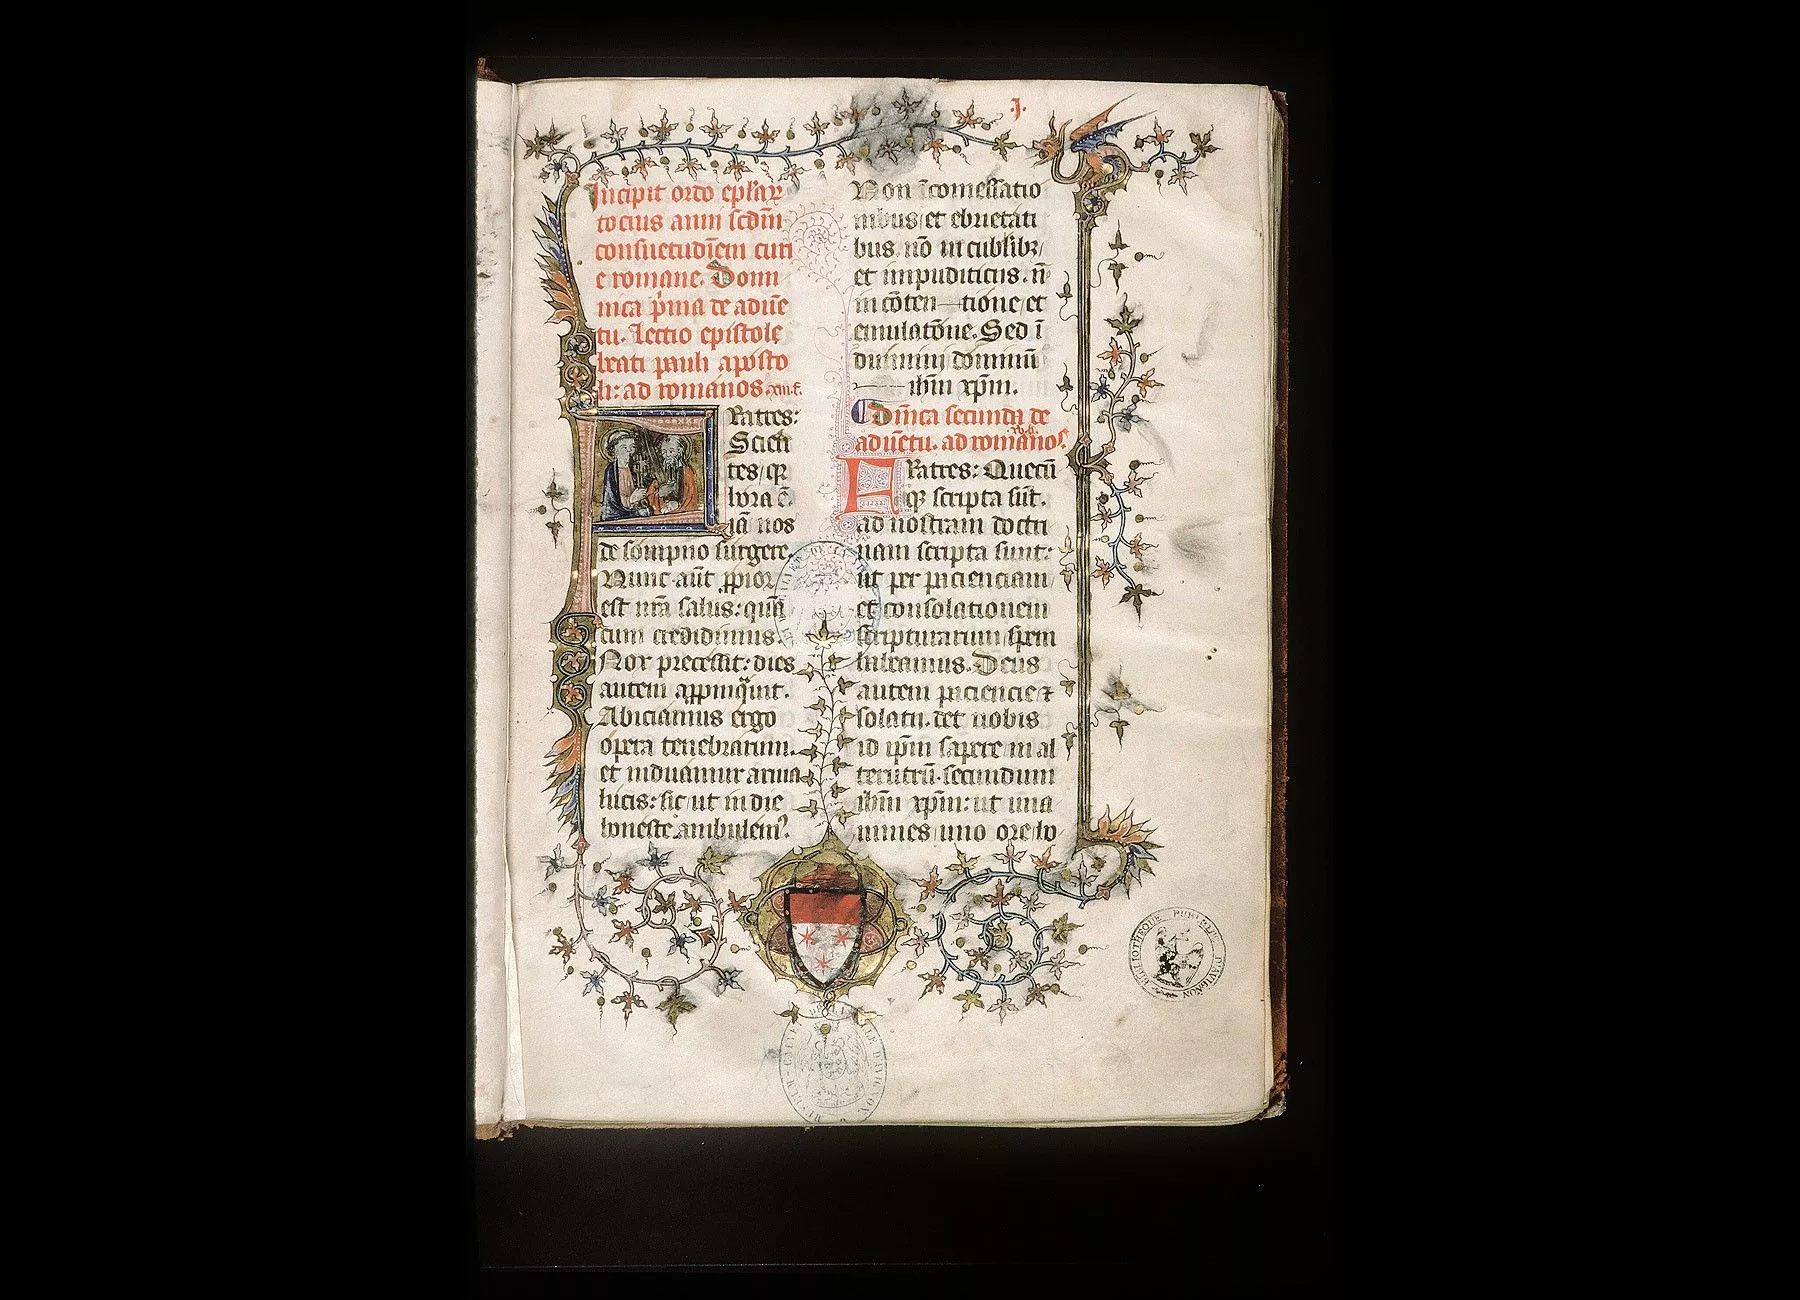 J.
Incipit ordo eplãꝝ
tocius anni scdm̄
consuetudinem curi
e romane. Domi
nica pͥma de adue̅
tu. Lectio epistole
beati pauli aposto
li: ad romanos. xiii. c.
Fratres:
Scien
tes q̢
hora ē.
iā nos
de sompno surgere.
Nunc aūt ꝓpior
est nr̄a salus: quā
cum credidimus.
Nox precessit: dies
autem appinq̄uit.
Abiciamus ergo
opera tenebrarum.
et induamur arma
lucis: sic ut in die
honeste ambulemꝰ.
Non ī comessatio
nibus et ebrietati
bus. nō in cubilibꝫ
et impudiciciis. nō
in cōten—tione et
emulatōne. Sed ī
duimini dominū
ihm̄ xp̄m.
Dn̄ica secunda de
aduētu. ad romanos. xv. c.
Fratres: Quecū
q̢ scripta sūt.
ad nostram doctri
nam scripta sunt:
ut per pacienciam
et consolationem
scripturarum spem
habeamus. Deus
autem paciencie ⁊
solatii. det nobis
id ip̄m sapere in al
terutrū. secundum
ihm̄ xp̄m: ut una
nimes uno ore ho
BIBLIOTHÈQUE PUBLIQUE D'AVIGNON
MUSEUM CALVET DE LA VILLE D'AVIGNON
MUSEUM CALVET DE LA VILLE D'AVIGNON